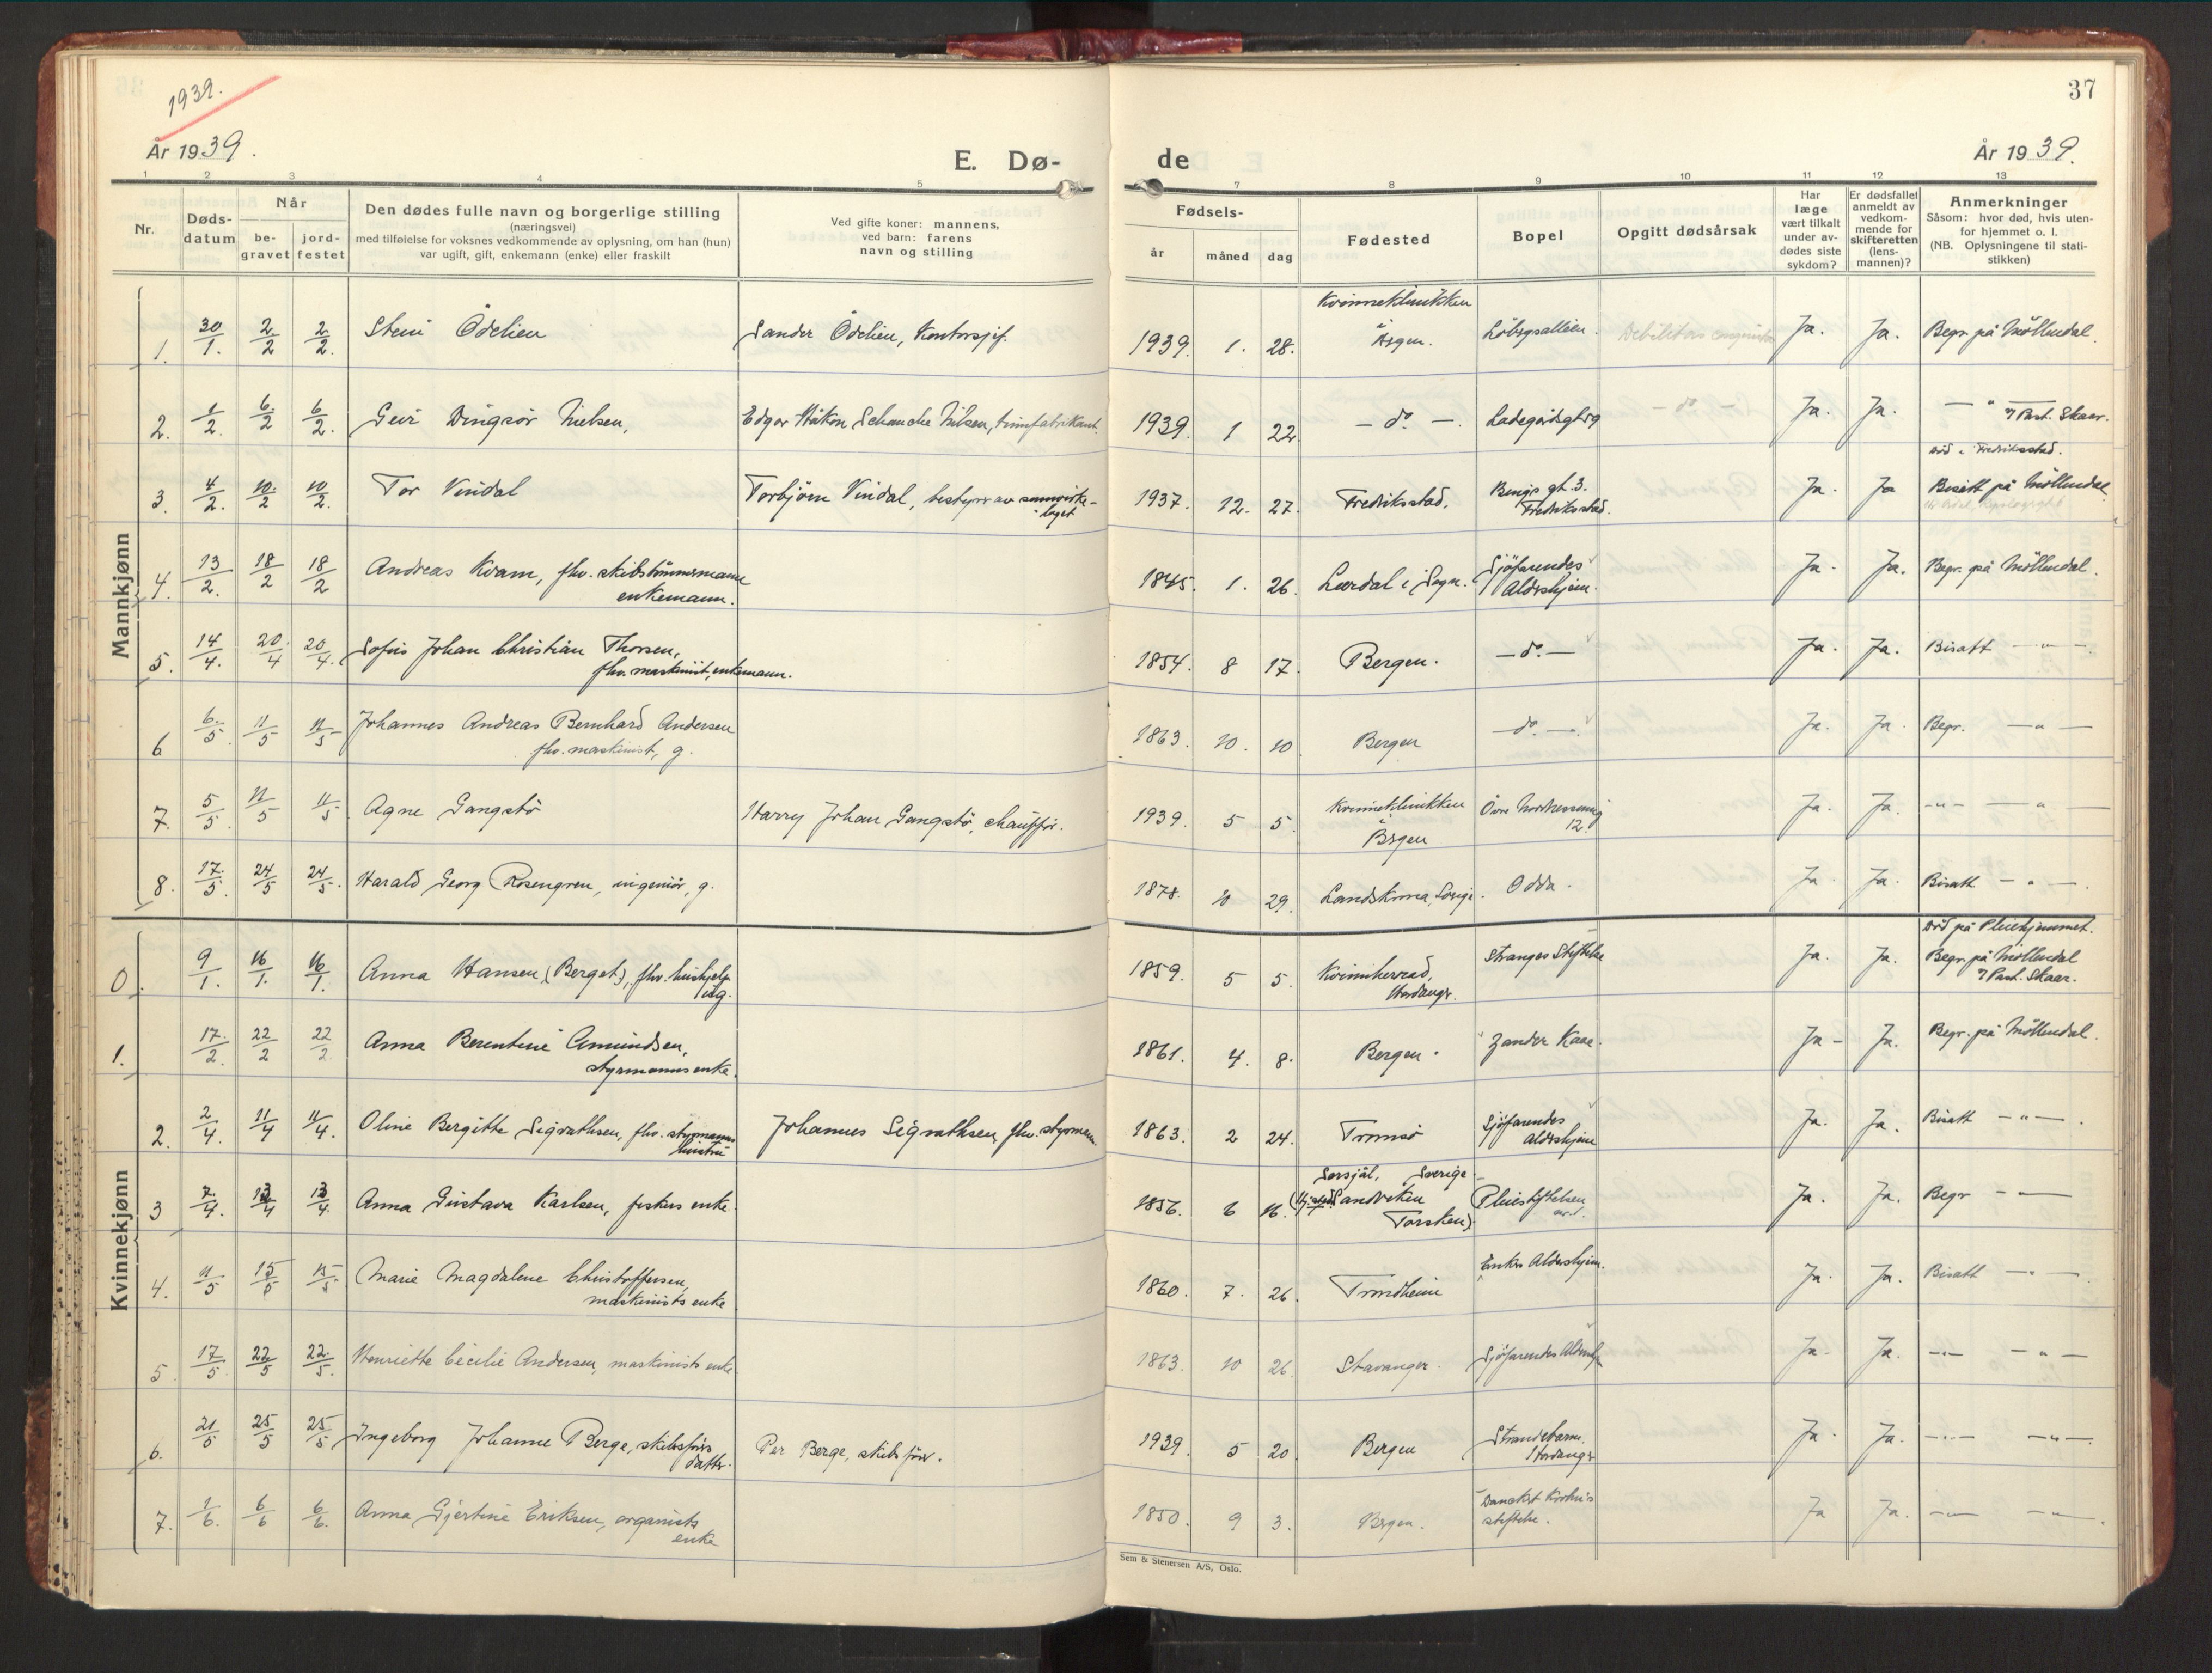 1939.
37
År 1939.
E. Dø-
de
År 1939.
1 2 3 4 5 7 8 9 10 11 12 13
Nr.
Døds-
datum
Når
be-
gravet
jord-
festet
Den dødes fulle navn og borgerlige stilling
(næringsvei)
med tilføielse for voksnes vedkommende av oplysning, om han (hun)
var ugift, gift, enkemann (enke) eller fraskilt
Ved gifte koner: mannens,
ved barn: farens
navn og stilling
Fødsels-
år
måned
dag
Fødested
Bopel
Opgitt dødsårsak
Har
læge
vært tilkalt
under av-
dødes siste
sykdom?
Er dødsfallet
anmeldt av
vedkom-
mende for
skifteretten
(lens-
mannen)?
Anmerkninger
Såsom: hvor død, hvis uten-
for hjemmet o. l.
(NB. Oplysningene til stati-
stikken)
Mannkjønn
1. 30/1. 2/2 2/2. Ödelien Sander Ödelien, Kontorsjef. 1939. 1. 28. Kvinneklinikken Ja. Ja. Begr. på Möllendal.
2. 1/2. 6/2 6/2. Geir Dingsör Nielsen, Edgar Håkon Schanche Nilsen, 1939. 1 22. - do. - - do - Ja. Ja. - " -
Past. Skaar.
død i Fredriksstad.
3. 4/2. 10/2 10/2. Tor Vindal Torbjörn Vindal, bestyrer av samvirke-
laget 1937. 12. 27. Fredriksstad, gt. 3.
Fredriksstad. Ja. Ja Bisatt på Möllendal
4. 13/2. 18/2 18/2 Andreas Kvam, fhv. skibstömmermann
enkemann. 1845. 1. 26. Lærdal i Sogn. Sjöfarendes
Aldershjem. Ja. Ja. Begr. på Möllendal.
5. 14/4. 20/4 20/4. Sofus Johan Christian Thorsen,
fhv. maskinist, enkemann. 1854. 8 17. Bergen. - do. - Ja. Ja. Bisatt - " -
6 6/5. 11/5 11/5 Johannes Andreas Bernhard Andersen
fhv. maskinist, g. 1863. 10. 10 Bergen - do. - Ja. Ja. Begr. - " -
7. 5/5. 11/5 11/5 Agne Gangstö Harry Johan Gangstö, chauffør. 1939. 5 5. Kvinneklinikken
Bergen Övre
12. Ja. Ja. - " - - " -
8. 17/5. 24/5 24/5. Harald Georg Rosengren, ingeniör, g. 1878. 10 29. Landskrona, Sverige. Odda. Ja. Ja. Bisatt - " -
Kvinnekjønn
0. 9/1. 16/1. 16/1. Anna Hansen, (Berget), fhv. hushjelp
ug. 1859. 5 5. Kvinnherrad,
Hardanger. Stranges Stiftelse Ja. Ja. Död på Pleiehjemmet.
Begr. på Möllendal
Past. Skaar.
1. 17/2. 22/2 22/2 Anna Berentine Amundsen,
styrmanns enke. 1861. 4. 8. Bergen. Zander Kaae. Ja - Ja. Begr. på Möllendal.
2. 2/4. 11/4 11/4. Oline Bergitte Sigvathsen, fhv. styrmanns
hustru Johannes Sigvathsen, fhv. styrmann 1863. 2 24. Tromsö Sjöfarendes
Aldershjem Ja. Ja. Bisatt - " -
3 7/4. 13/4 13/4. Anna Gustava Karlsen, fiskers enke. 1856. 6 16. Sverige
Sandviken
Torsken). Pleiestiftelsen Ja. Ja. Begr - -
4. 11/5 15/5 15/5. Marie Magdalene Christoffersen,
maskinists enke 1860. 7. 26. Trondheim Enkers Aldershjem. Ja. Ja. Bisatt - " -
5 17/5. 22/5 22/5. Henriette Cecilie Andersen, maskinists enke. 1863. 10 26. Stavanger. Sjöfarendes Aldershjem Ja. Ja. - " - - " -
6. 21/5 25/5 25/5. Ingeborg Johanne Berge, skibsförers
datter. Per Berge, skibsförer. 1939. 5 20. Bergen Strandebarm.
Hardanger Ja. Ja. - " - - " -
7. 1/6. 6/6 6/6. Anna Gjertine Eriksen, organists
enke 1850. 9 3. Bergen. Danckert Krohn's
stiftelse. Ja Ja. - " - - " -
Sem & Stenersen A/S, Oslo.